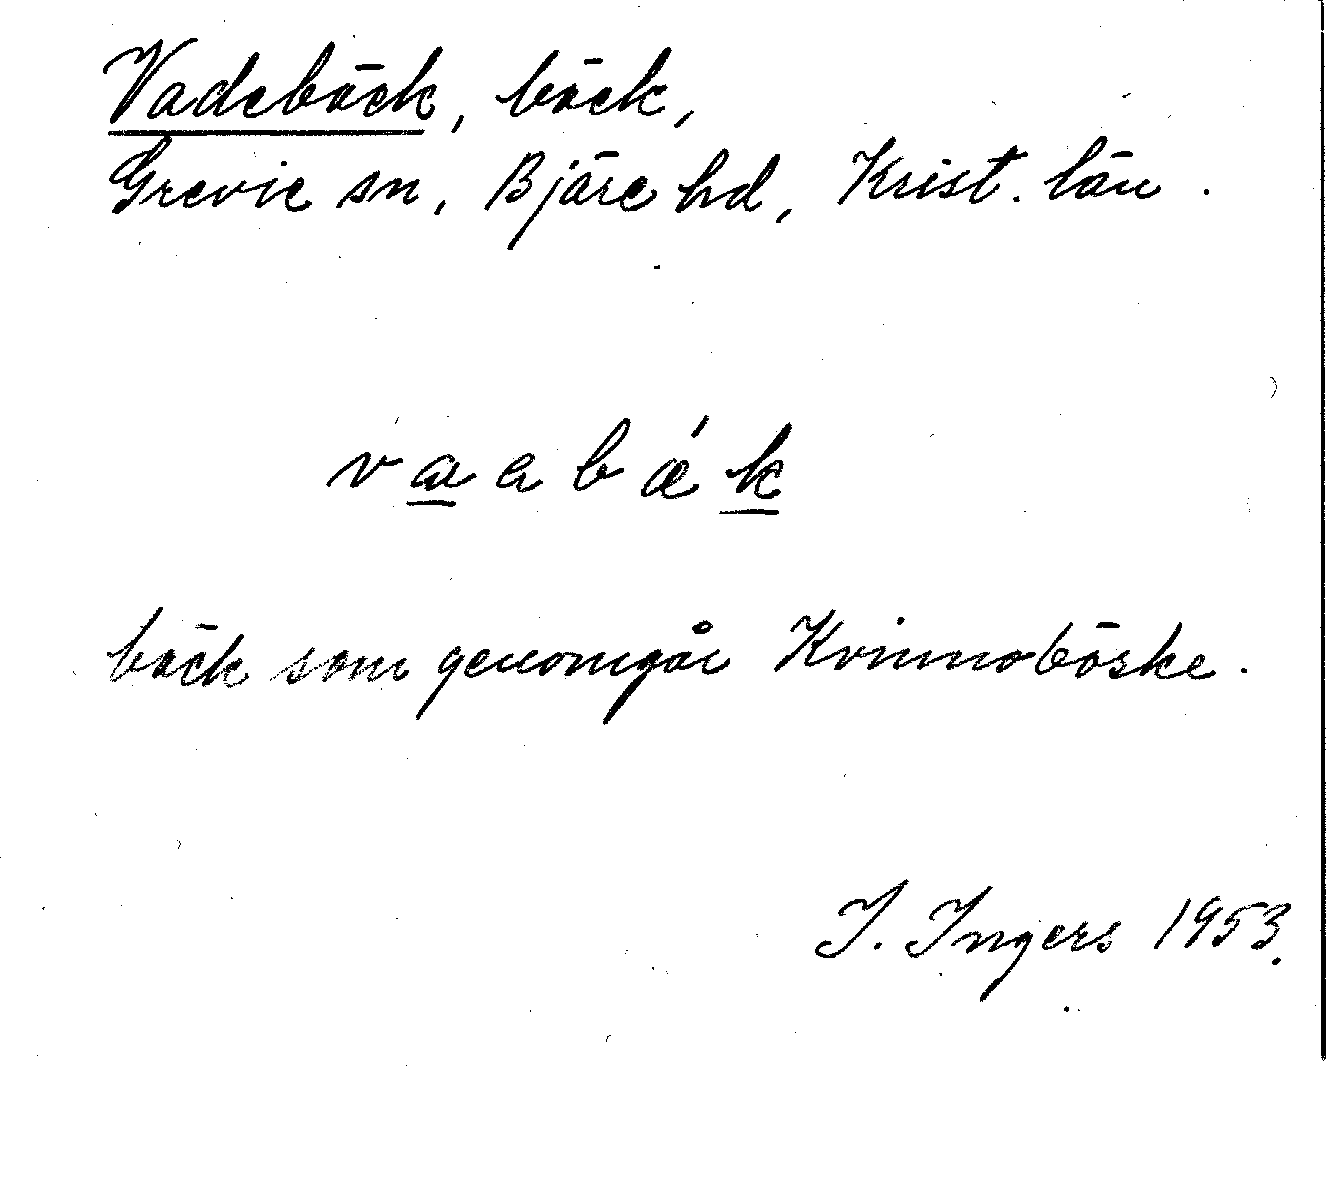 Vadebäck, bäck,
Grevie sn, Bjäre hd, Krist. län.
bäck som genomgår Kvinnoböske.
I. Ingers 1953.